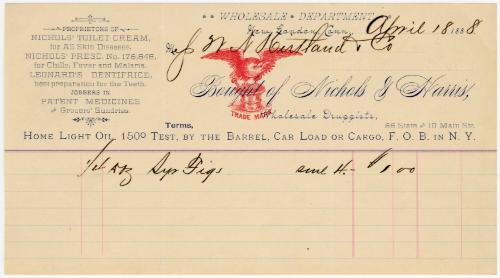 PROPRIETORS OF
NICHOLS' TOILET CREAM,
for All Skin Diseases.
NICHOLS' PRESC. No. 176,848,
for Chills, Fever and Malaria.
LEONARD'S DENTIFRICE,
best preparation for the Teeth.
JOBBERS IN
PATENT MEDICINES
AND Grocers' Sundries.
WHOLESALE DEPARTMENT.
New London, Conn. April 18 1888
W. N. & Co
Bought of Nichols & Harris,
TRADE MARK
Wholesale Druggists,
Terms,
55 State AND 10 Main Sts.
HOME LIGHT OIL 150° TEST, BY THE BARREL, CAR LOAD OR CARGO, F. O. B. IN N. Y.
Syr Figs 4.- $1.00